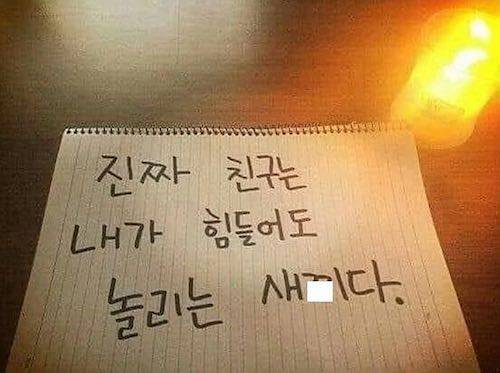 진짜 친구는
내가 힘들어도
놀리는